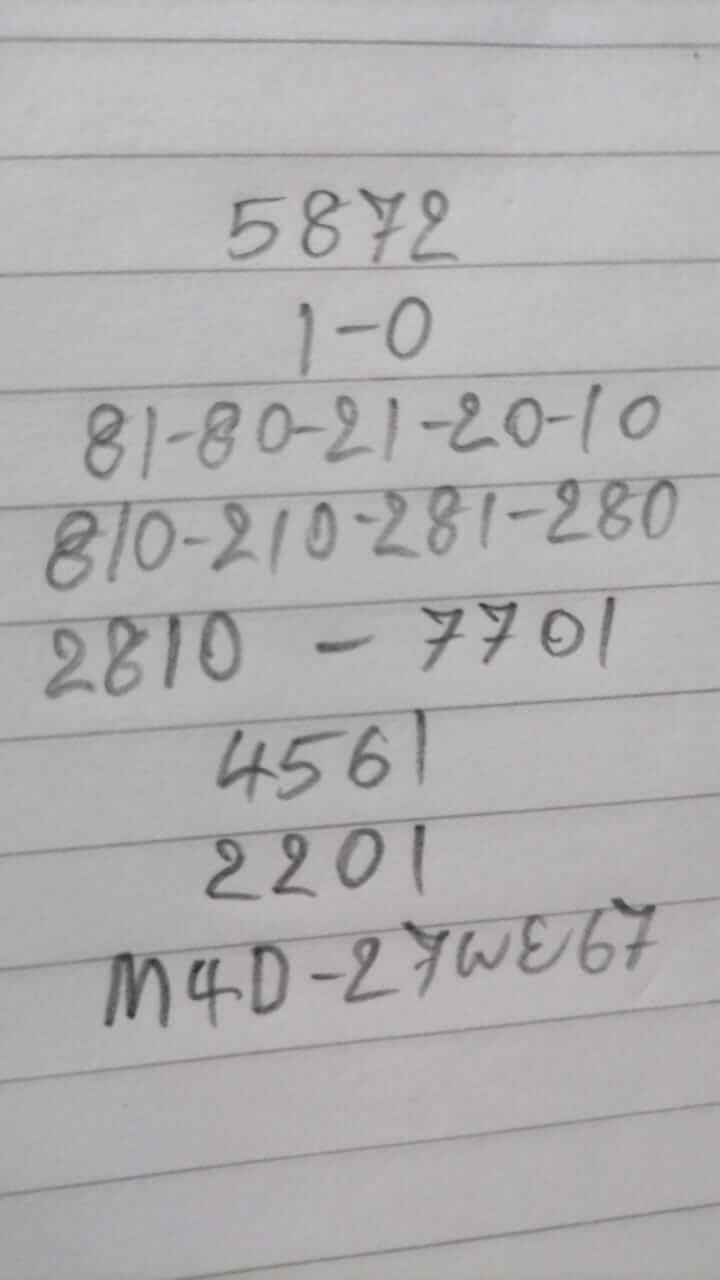 5872
1-0
81-80-21-20-10
810-210-281-280
2810 - 7701
4561
2201
M4D-27WE67